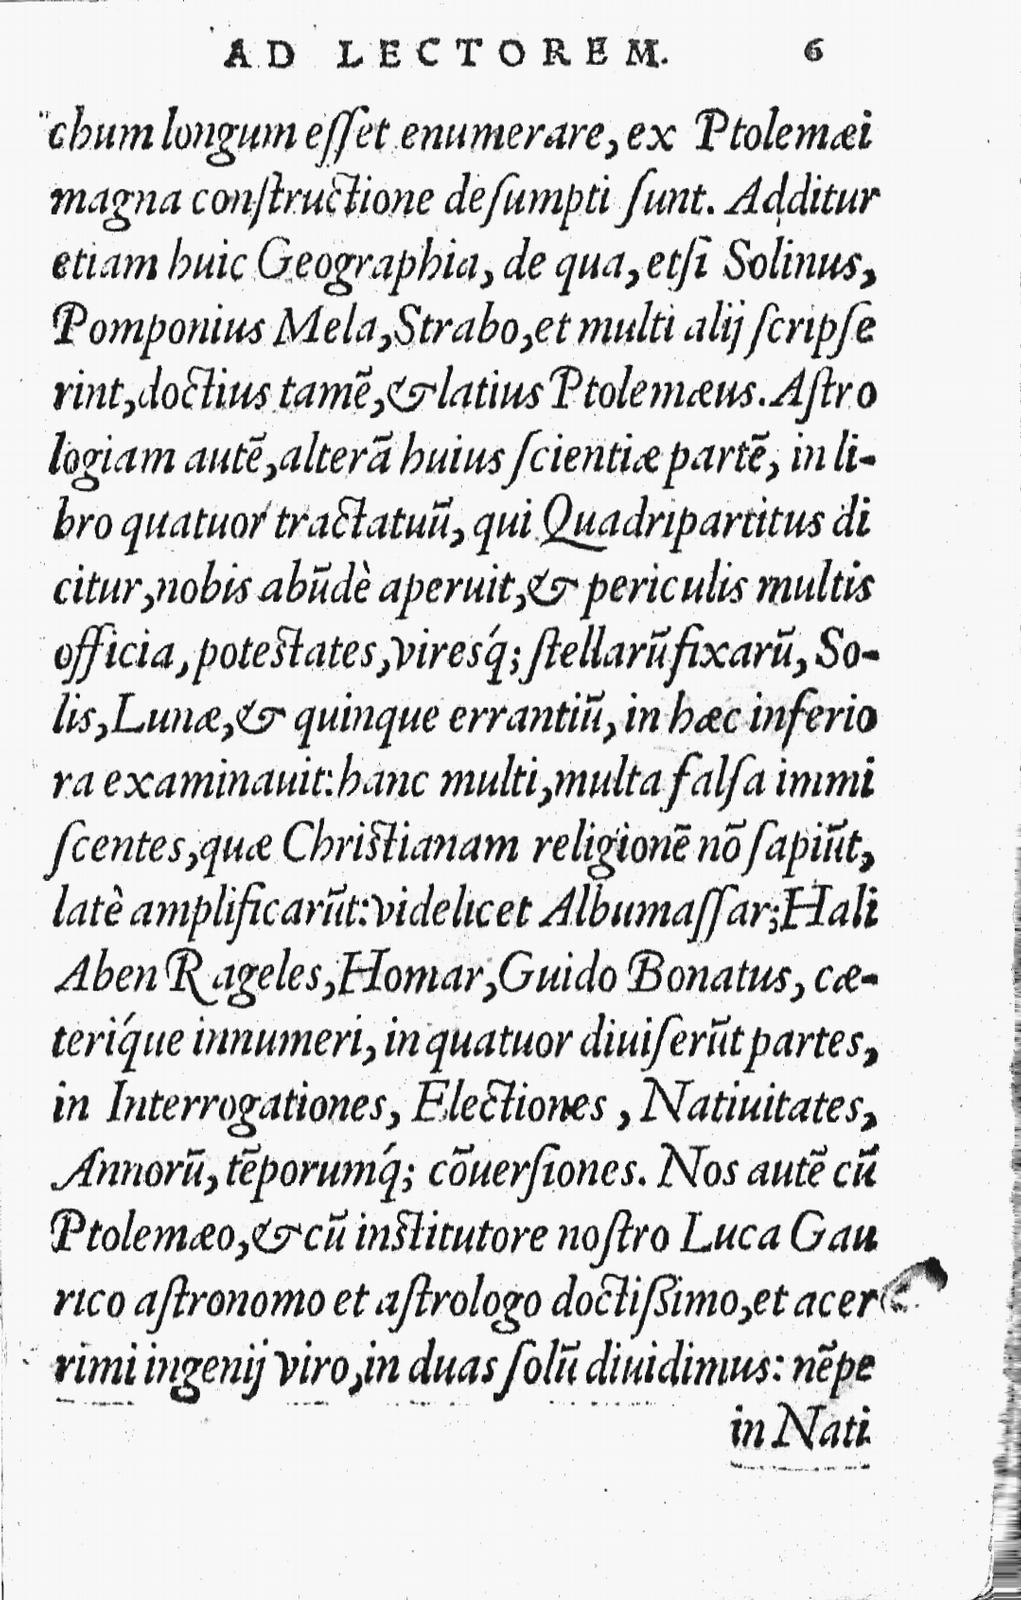 AD LECTOREM. 6
chum longum eſſet enumerare, ex Ptolemæi
magna conſtructione deſumpti ſunt. Additur
etiam huic Geographia, de qua, etſi Solinus,
Pomponius Mela, Strabo, et multi alij ſcripſe
rint, doctius tamē, & latius Ptolemæus. Aſtro
logiam autē, alterā huius ſcientiæ partē, in li-
bro quatuor tractatuū, qui Quadripartitus di
citur, nobis abūdè aperuit, & periculis multis
officia, potestates, viresq́; ſtellarū fixarū, So-
lis, Lunæ, & quinque errantiū, in hæc inferio
ra examinauit: hanc multi, multa falſa immi
ſcentes, quæ Christianam religionē nō ſapiūt,
latè amplificarūt: videlicet Albumaſſar; Hali
Aben Rageles, Homar, Guido Bonatus, cæ-
teriq́ue innumeri, in quatuor diuiſerūt partes,
in Interrogationes, Electiones, Natiuitates,
Annorū, tēporumq́; cōuerſiones. Nos autē cū
Ptolemæo, & cū institutore noſtro Luca Gau
rico aſtronomo et aſtrologo doctiſsimo, et acer
rimi ingenij viro, in duas ſolū diuidimus: nēpe
in Nati